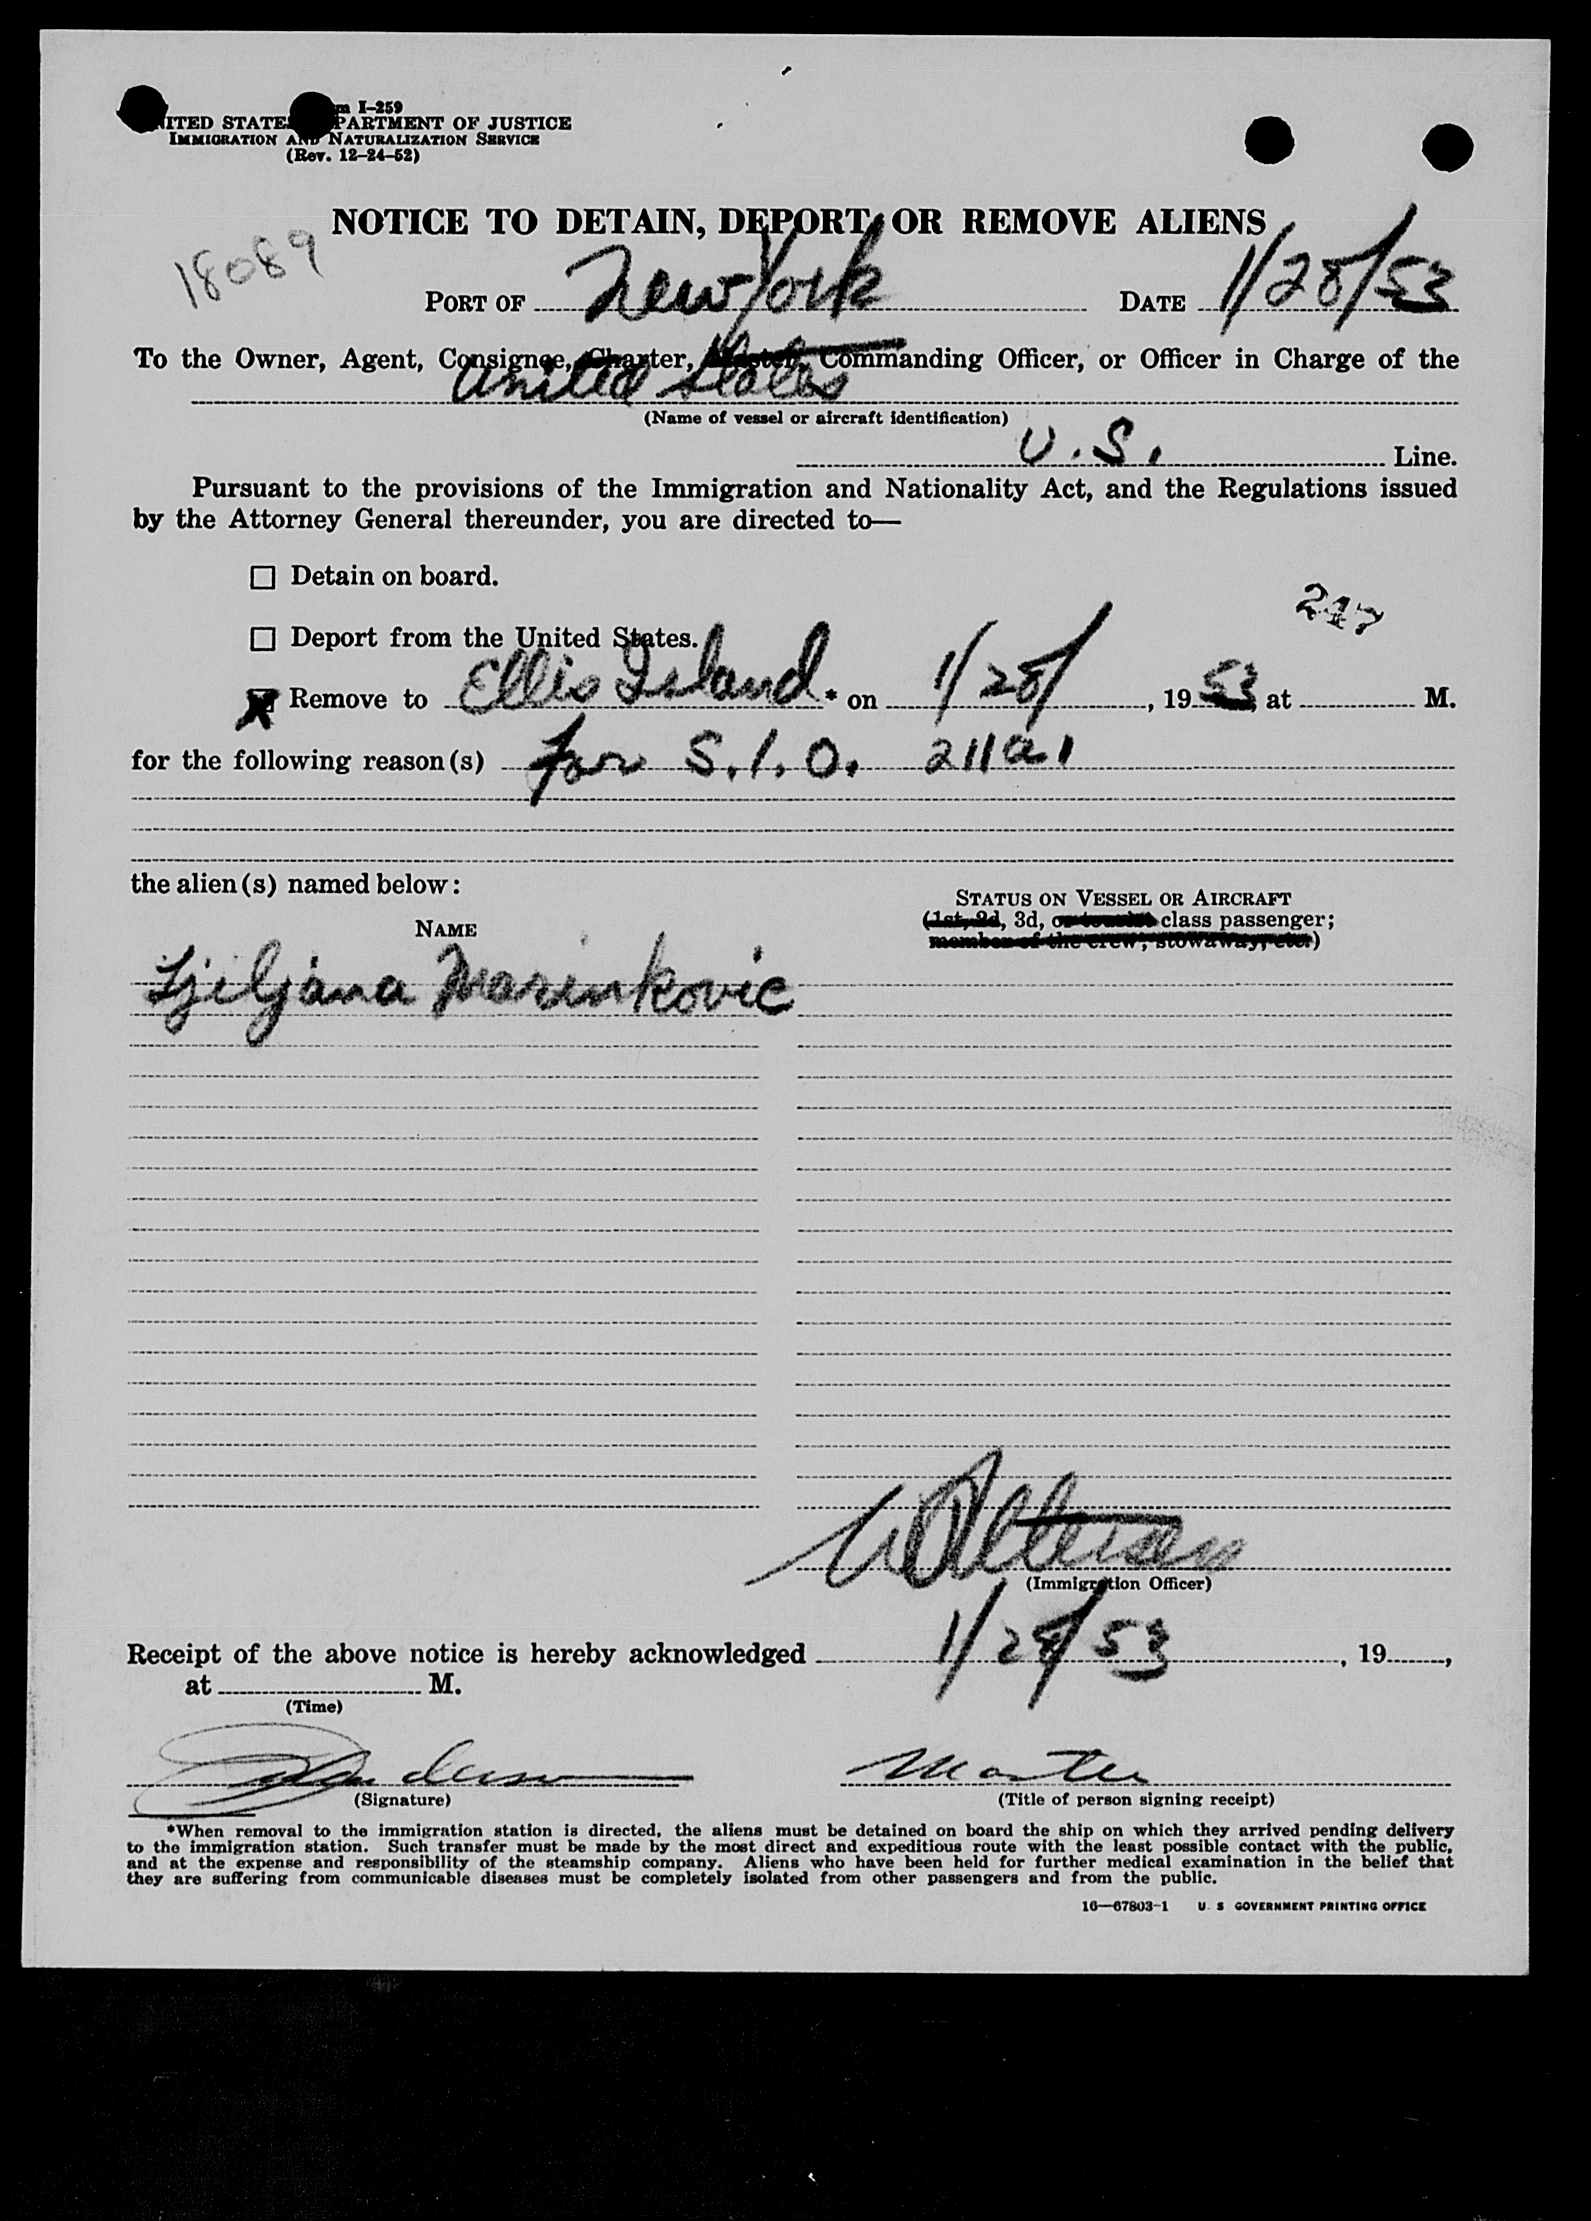 m I-259
ITED STATES PARTMENT OF JUSTICE
IMMIGRATION AND NATURALIZATION SERVICE
(Rev. 12-24-52)
NOTICE TO DETAIN, DEPORT, OR REMOVE ALIENS
18089
PORT OF New York DATE 1/28/53
To the Owner, Agent, Consignee, Charter, Master, Commanding Officer, or Officer in Charge of the
United States
(Name of vessel or aircraft identification)
U.S. Line.
Pursuant to the provisions of the Immigration and Nationality Act, and the Regulations issued
by the Attorney General thereunder, you are directed to—
Detain on board.
247
Deport from the United States.
Remove to Ellis Island * on 1/28/, 1953, at M.
for the following reason(s) for S.I.O. 211a1
the alien(s) named below:
NAME
STATUS ON VESSEL OR AIRCRAFT
(1st, 2d, 3d, or tourist class passenger;
member of the crew, stowaway, etc.)
Ljiljana Marinkovic
(Immigration Officer)
Receipt of the above notice is hereby acknowledged 1/28/53, 19 ,
at M.
(Time)
Master
(Signature) (Title of person signing receipt)
*When removal to the immigration station is directed, the aliens must be detained on board the ship on which they arrived pending delivery
to the immigration station. Such transfer must be made by the most direct and expeditious route with the least possible contact with the public,
and at the expense and responsibility of the steamship company. Aliens who have been held for further medical examination in the belief that
they are suffering from communicable diseases must be completely isolated from other passengers and from the public.
16—67803-1 U. S GOVERNMENT PRINTING OFFICE